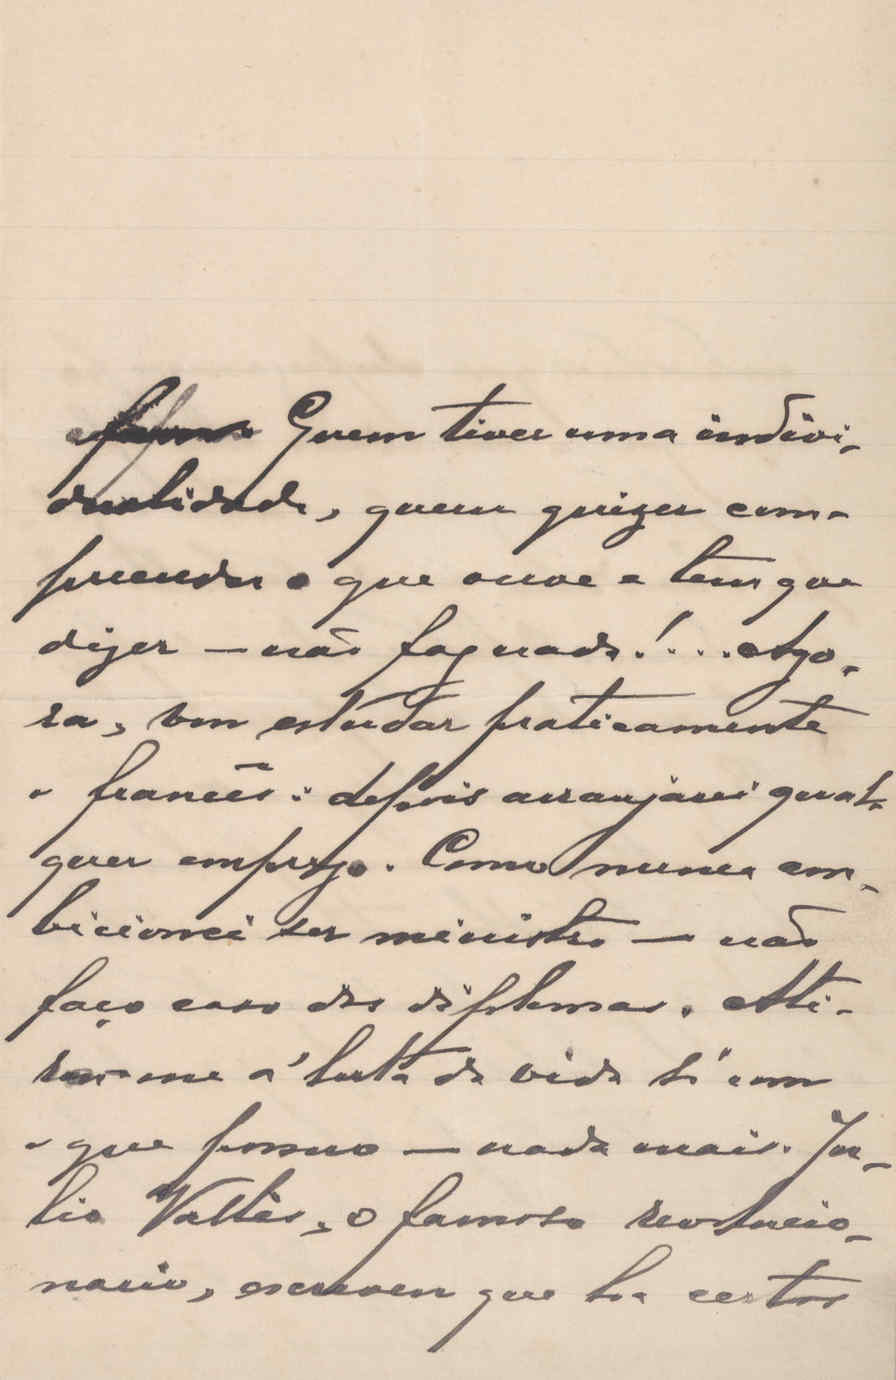 Quem tiver uma indivi-
dualidade, quem quizer com-
prehender o que ouve e tem que
dizer — não faz nada!.... Ago-
ra, vou estudar praticamente
o francês: depois arranjarei qual-
quer emprego. Como nunca am-
bicionei ser ministro — não
faço caso dos diplomas. Ati-
rar-me á luta da vida só com
o que possuo — nada mais. Ju-
lio Vallès, o famoso revolucio-
nario, escreveu que ha certos